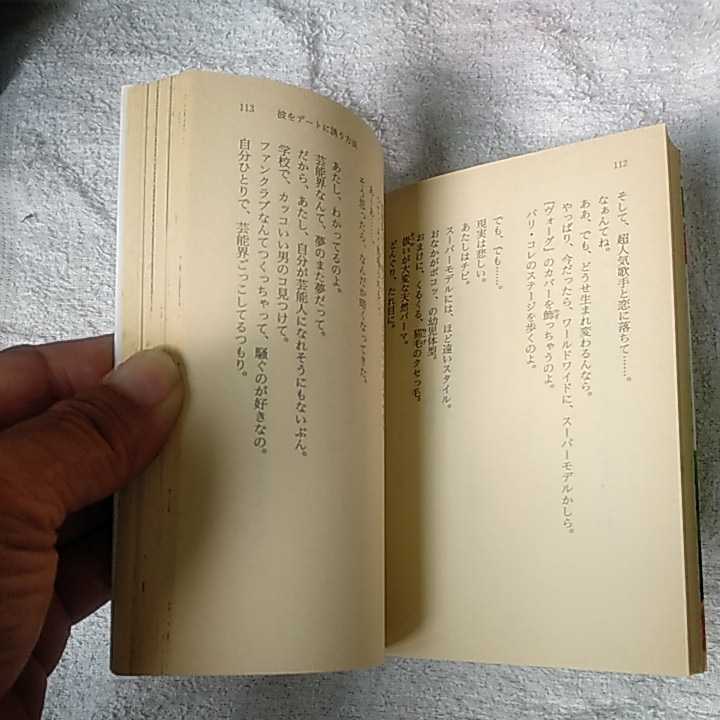 112
そして、超人気歌手と恋に落ちて……。
なぁんてね。
ああ、でも、どうせ生まれ変わるんなら。
やっぱり、今だったら、ワールドワイドに、スーパーモデルかしら。
『ヴォーグ』のカバーを飾っちゃうのよ。
パリ・コレのステージを歩くのよ。
でも、でも……。
現実は悲しい。
あたしはチビ。
スーパーモデルには、ほど遠いスタイル。
おなかがポコッ、の幼児体型。
おまけに、くるくる、猫毛のクセっ毛。
扱いが大変な天然パーマ。
どんぐり、たれ目に。
113 彼をデートに誘う方法
そう思ったら、なんだか暗くなってきた。
あたし、わかってるのよ。
芸能界なんて、夢のまた夢だって。
だから、あたし、自分が芸能人になれそうにもないぶん。
学校で、カッコいい男のコ見つけて。
ファンクラブなんてつくっちゃって、騒ぐのが好きなの。
自分ひとりで、芸能界ごっこしてるつもり。